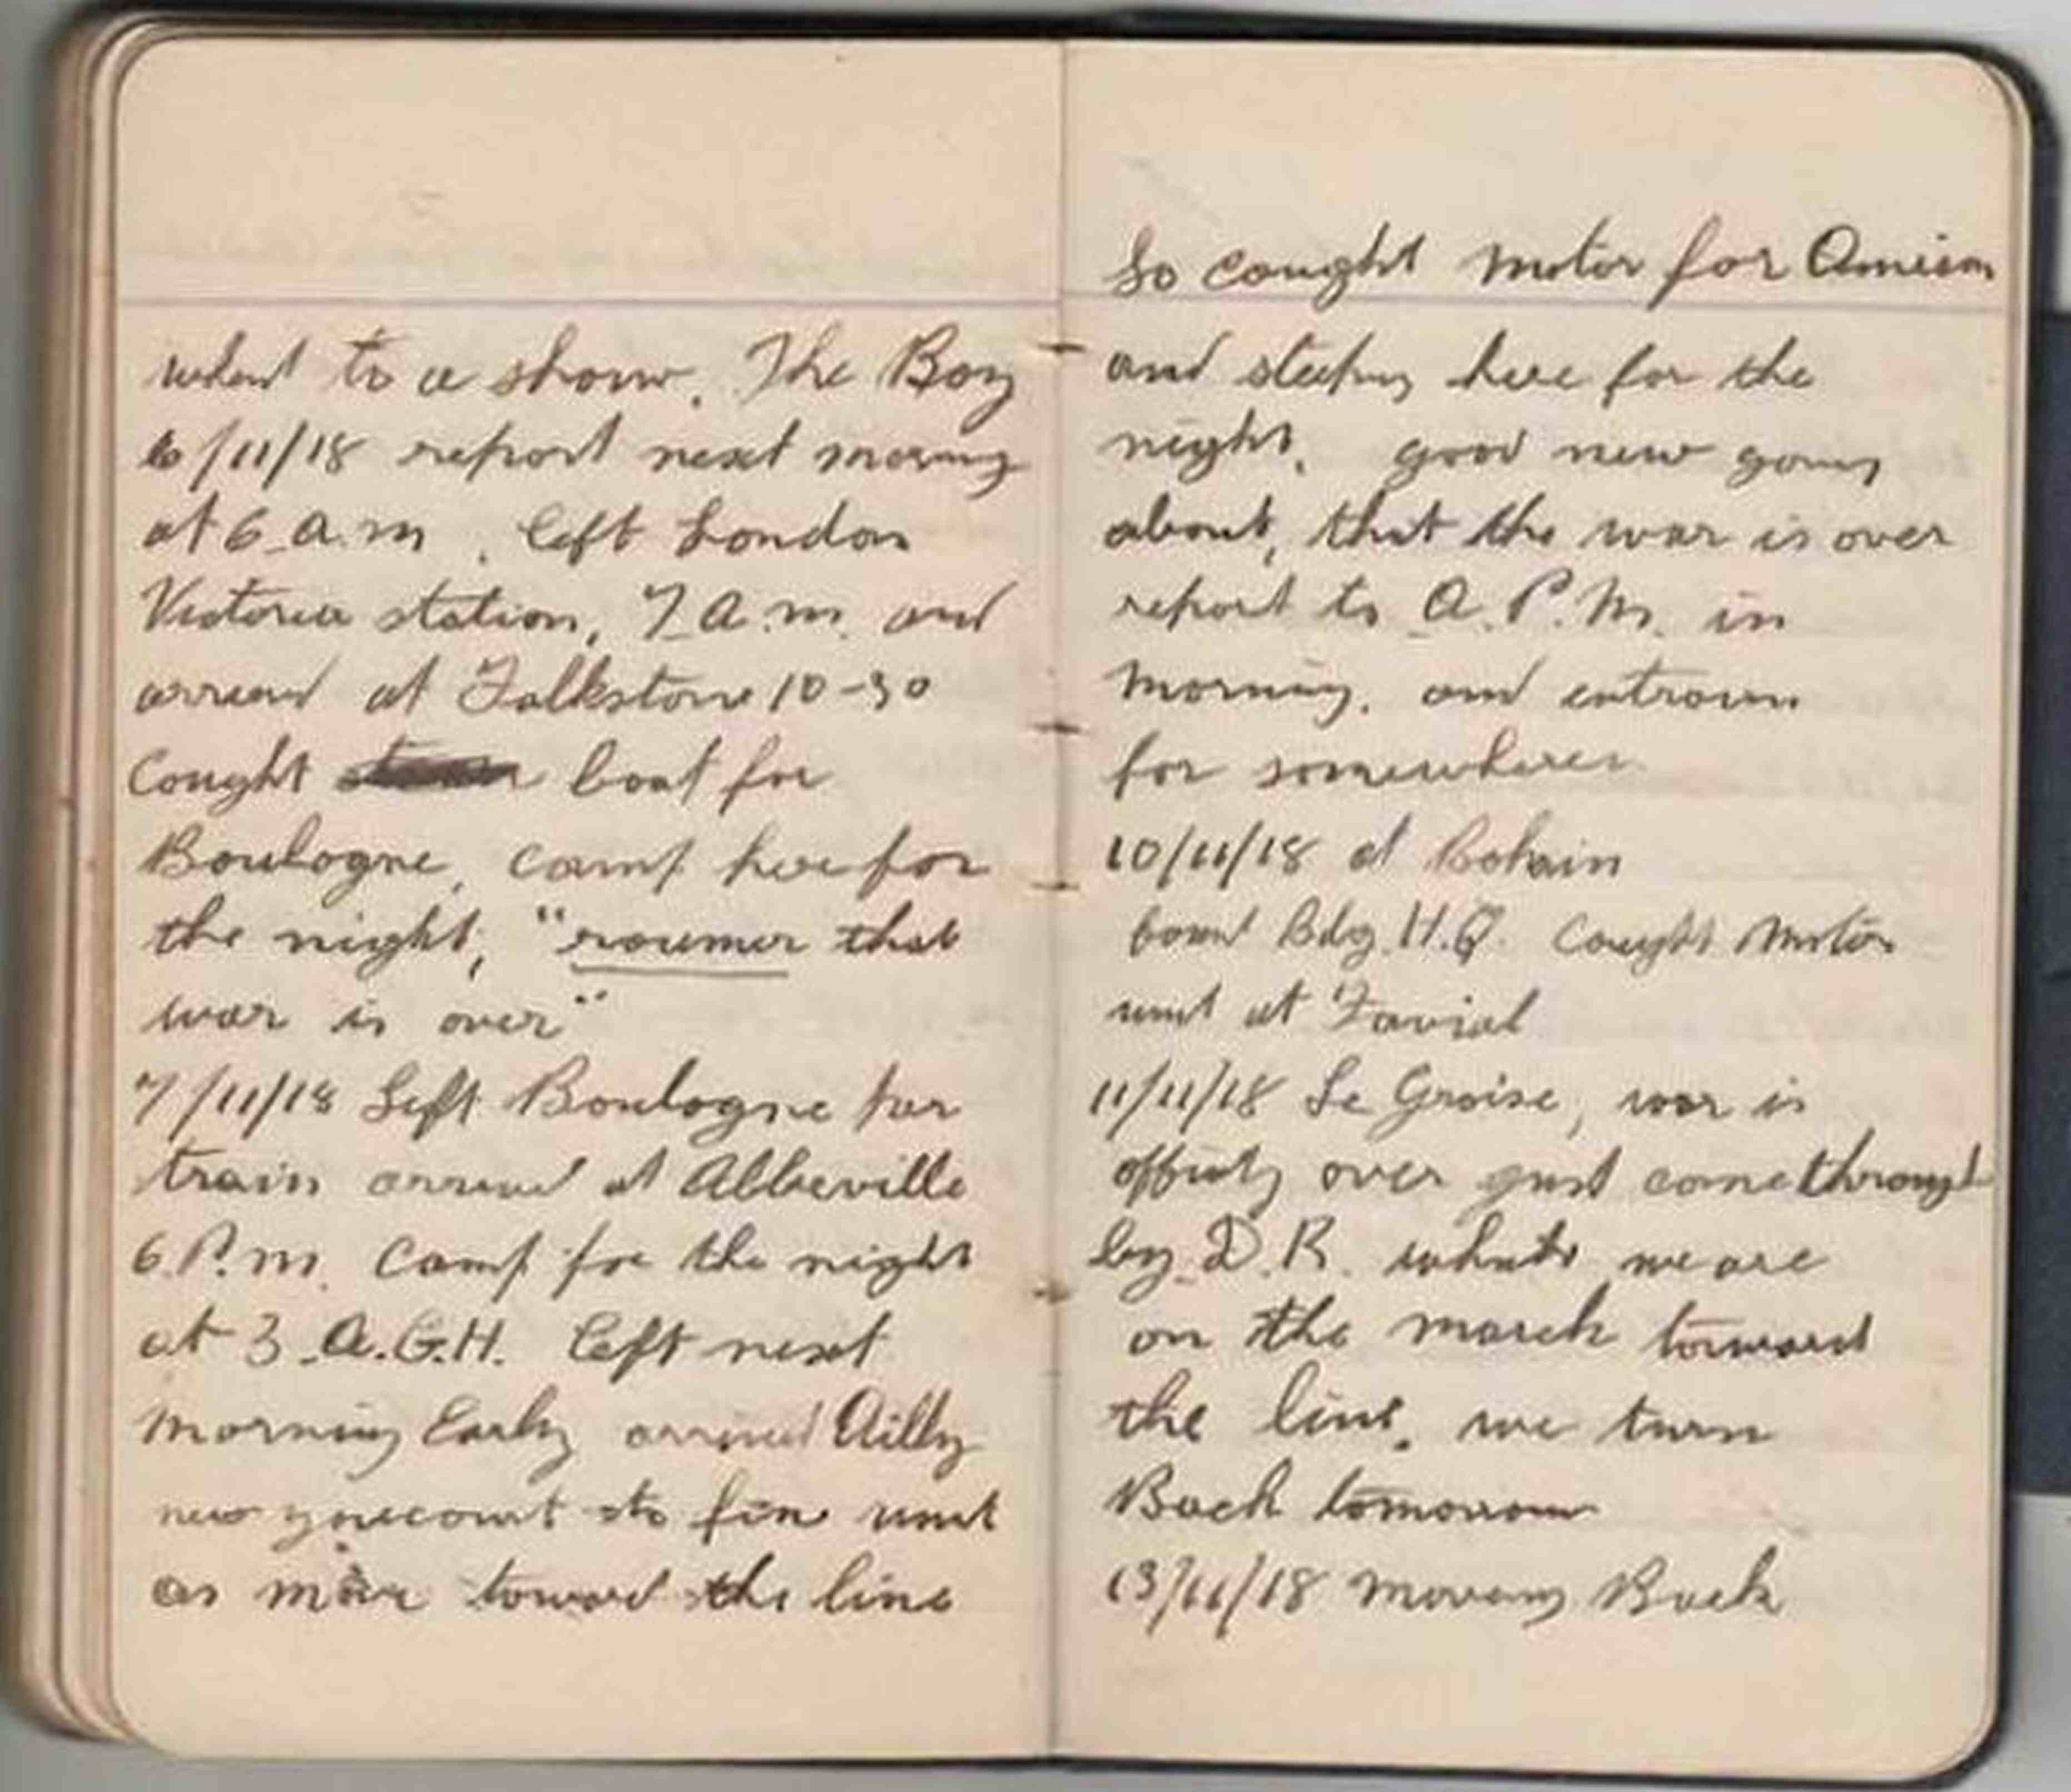 whent to a show. The Boy
6/11/18 report next morning
at 6 a.m. left London
Victoria station, 7 a.m. and
arrived at Falkstone 10-30
Cought boat for
Boulogne, camp here for
the night, "roumer that
war is over"
7/11/18 Left Boulogne per
train arrived at Abbeville
6. P.m. Camp for the night
at 3 A.G.H. left next
morning Early arrived Ailly
new to fine unit
as move toward the line
So cought motor for Amiens
and sleeping here for the
night. good new going
about, that the war is over
report to A.P.M. in
morning. and entrain
for somewhere
10/11/18 at Bohain
found Bdg. H.Q. Caught Motor
unit at Favial
11/11/18 Le Groise, war is
over just come through
by D.R. whilst we are
on the march toward
the line. we turn
Back tomorrow
13/11/18 Moveing Back